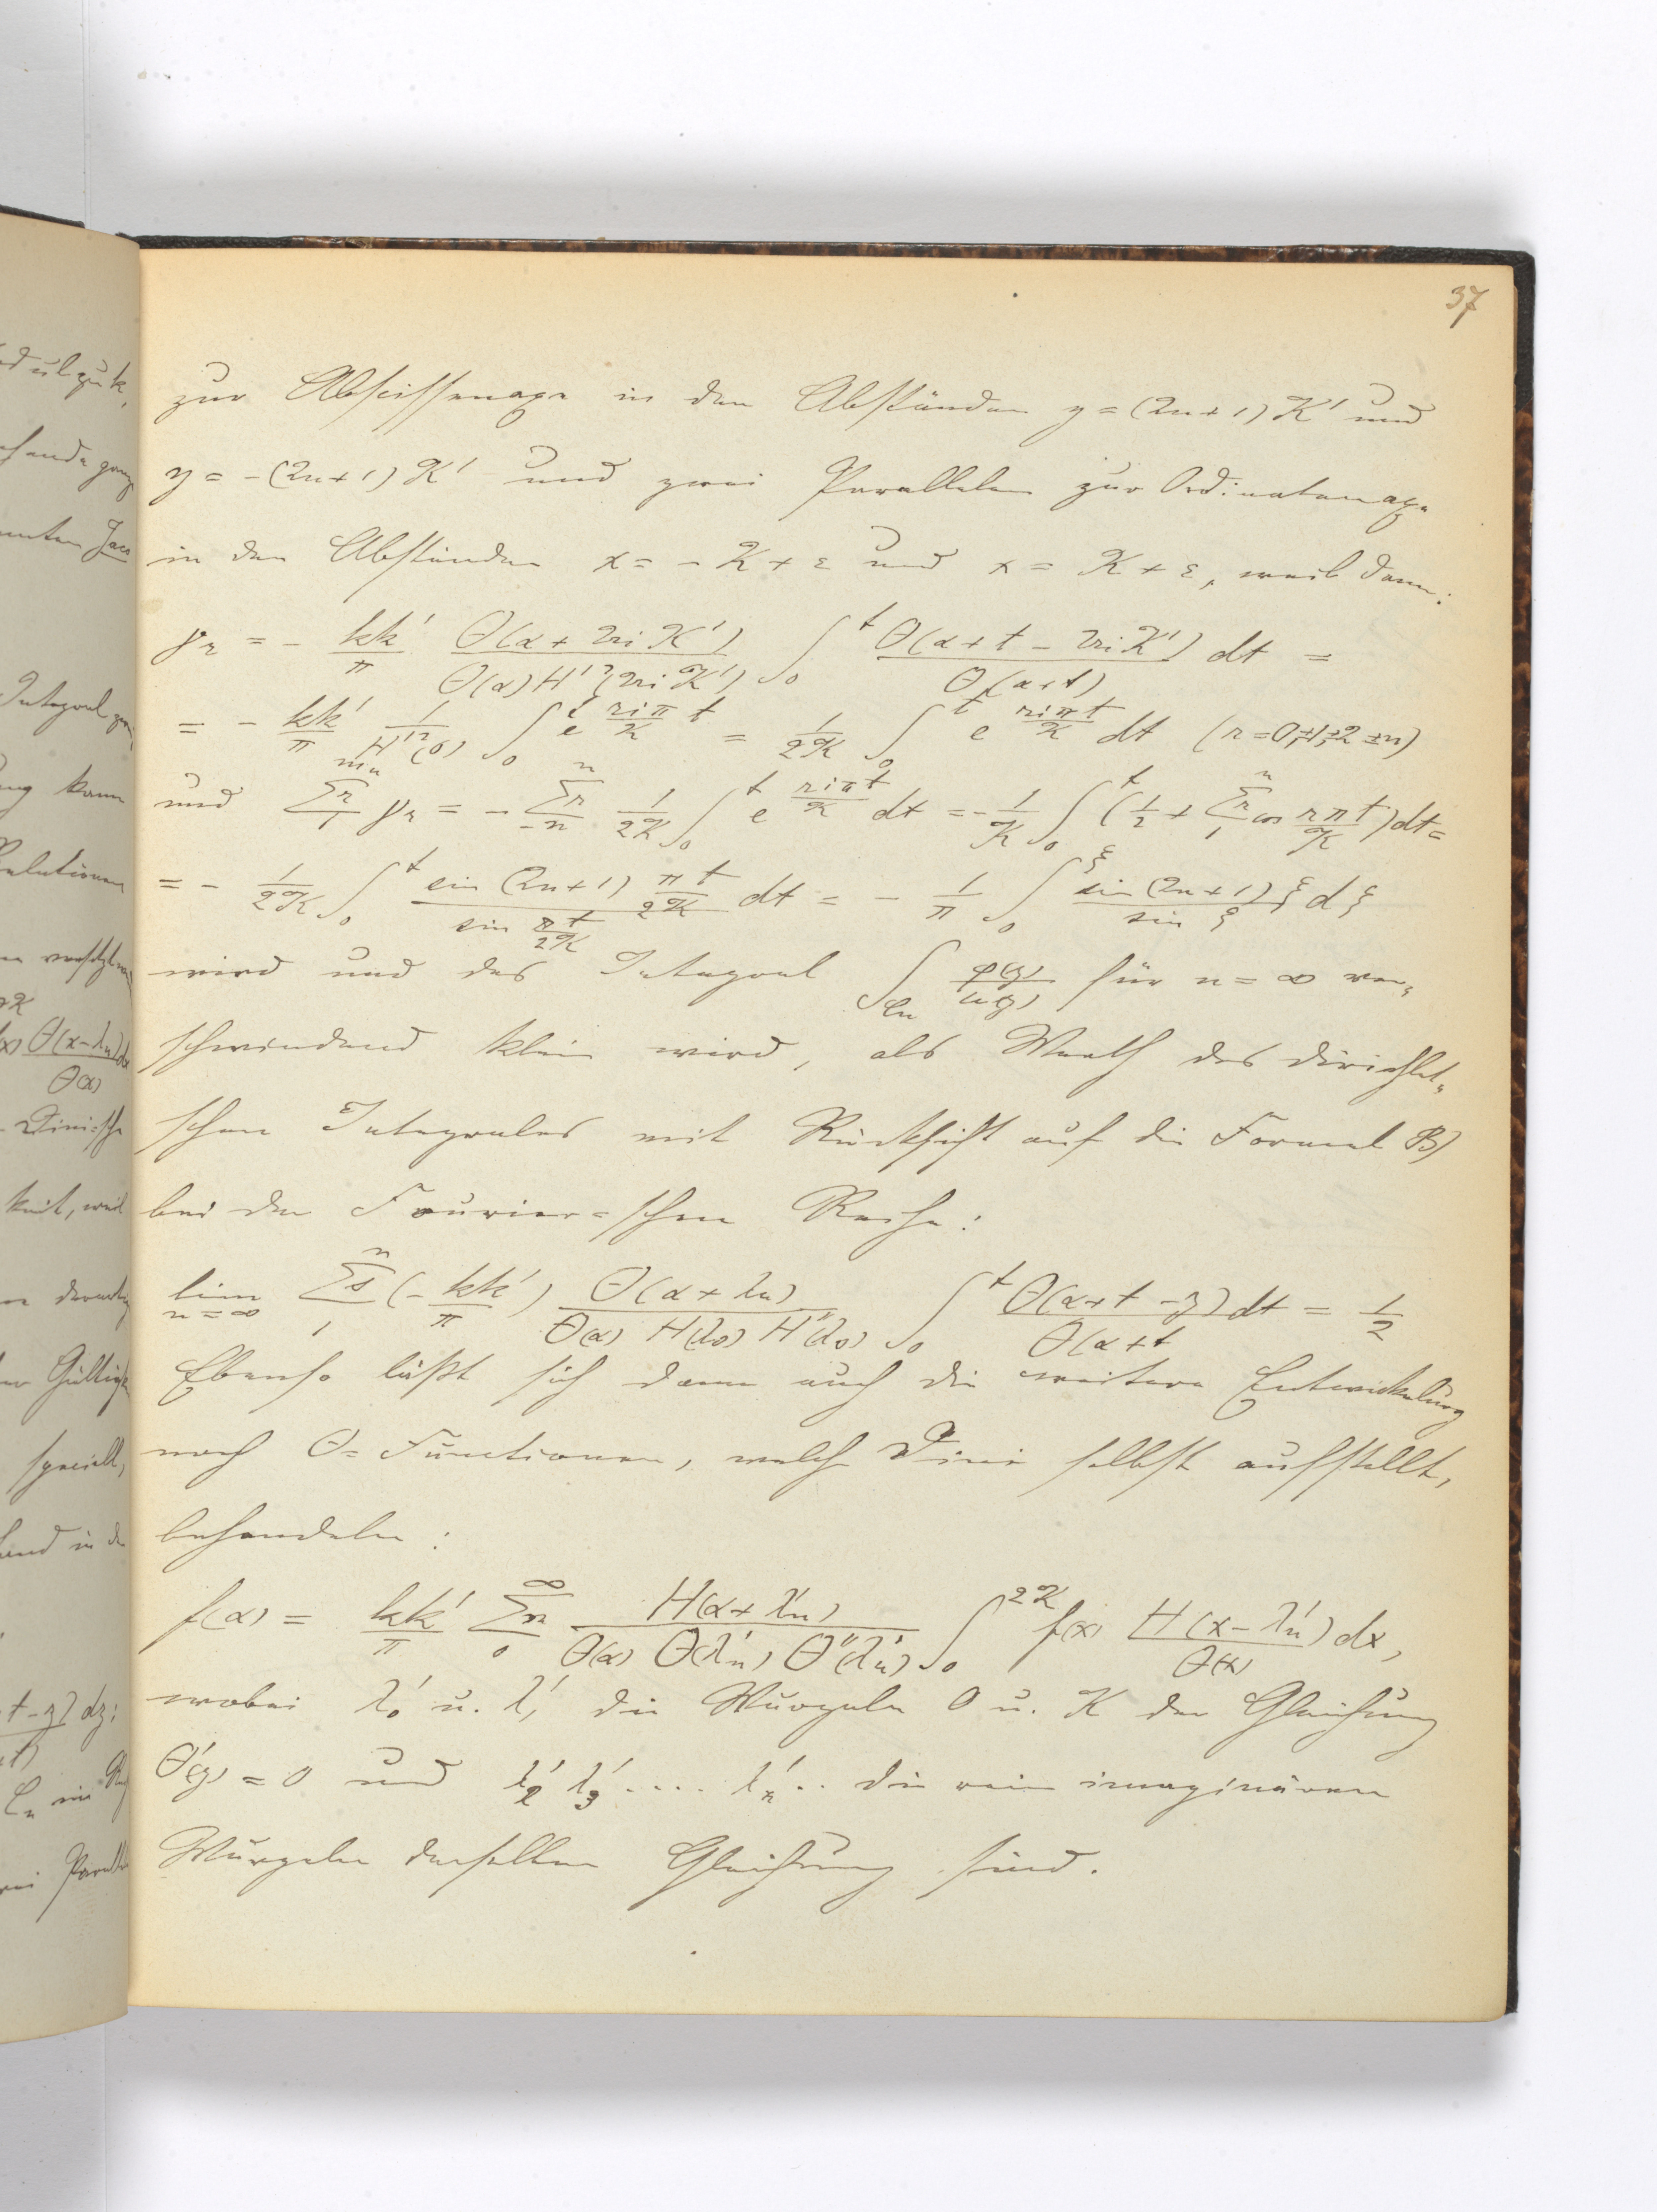 37
zur Abscissenaxe in den Abständen y = (2n+1) K' und
y = -(2n+1) K' und zwei Parallelen zur Ordinatenaxe
in den Abständen x = -K+ε und x = K+ε, weil dann:
γ_r = - kk'/π Θ(α+2riK')/(Θ(α)H'²(2riK')) ∫_0^t Θ(α+t-2riK')/Θ(α+t) dt =
= - kk'/π 1/H'²(0) ∫_0^t e^{riπt/K} = 1/2K ∫_0^t e^{riπt/K} dt (r=0,±1,±2 ±n)
und Σ_1^{m_n} γ_r = - Σ_{-n}^n 1/2K ∫_0^t e^{riπt/K} dt = - 1/K ∫_0^t (1/2 + Σ_1^n cos rπt/K) dt =
= - 1/2K ∫_0^t sin (2n+1) πt/2K / sin πt/2K dt = - 1/π ∫_0^ξ sin (2n+1) ξ / sin ξ dξ
wird und das Integral ∫_{C_n} φ(z)/u(z) für n = ∞ ver-
schwindend klein wird, als Werth des Dirichlet-
schen Integrales mit Rücksicht auf die Formel B)
bei der Fourier-schen Reihe:
lim_{n=∞} Σ_1^n s (- kk'/π) Θ(α+λn)/(Θ(α) H(λs) H''(λs)) ∫_0^t Θ(α+t-z) dt / Θ(α+t = 1/2
Ebenso läßt sich dann auch die weitere Entwickelung
nach Θ-Functionen, welche Dini selbst aufstellt,
behandeln:
f(α) = kk'/π Σ_0^∞ n H(α+λ'n)/(Θ(α) Θ(λ'n) Θ''(λ'n)) ∫_0^{2K} f(x) H(x-λ'n)/Θ(x) dx,
wobei λ'_0 u. λ'_1 die Wurzeln 0 u. K der Gleichung
Θ'(z) = 0 und λ'_2 λ'_3 .... λ'_n .. die rein imaginären
Wurzeln derselben Gleichung sind.